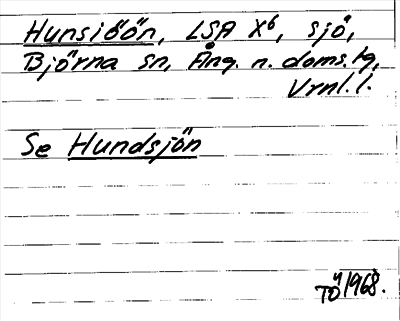 Hunsiöön, LSA X⁶, sjö,
Björna sn, Ång. n. doms.tg,
Vrnl.l.
Se Hundsjön
TÖ 1968.